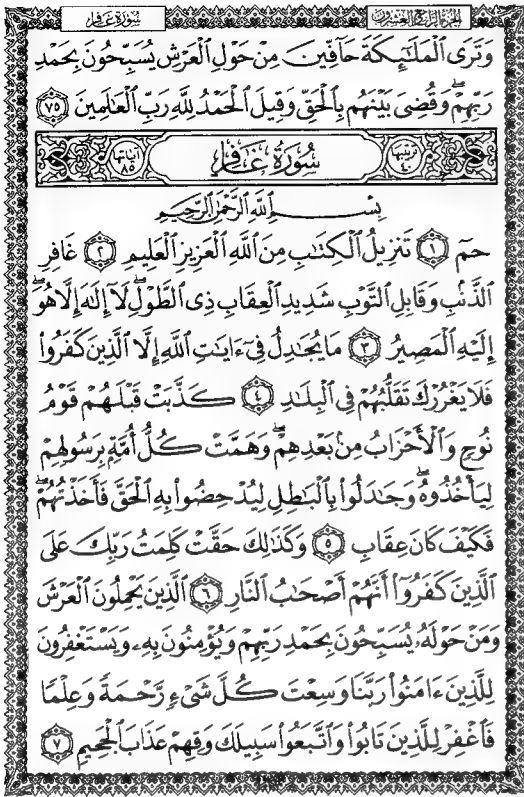 الجزء الرابع والعشرون
سُورَة غَافِر
وَتَرَى ٱلْمَلَٰٓئِكَةَ حَآفِّينَ مِنْ حَوْلِ ٱلْعَرْشِ يُسَبِّحُونَ بِحَمْدِ
رَبِّهِمْ ۖ وَقُضِىَ بَيْنَهُم بِٱلْحَقِّ وَقِيلَ ٱلْحَمْدُ لِلَّهِ رَبِّ ٱلْعَٰلَمِينَ ٧٥
ترتيبها ٤٠ سُورَة غَافِر آياتها ٨٥
بِسْمِ ٱللَّهِ ٱلرَّحْمَٰنِ ٱلرَّحِيمِ
حمٓ ١ تَنزِيلُ ٱلْكِتَٰبِ مِنَ ٱللَّهِ ٱلْعَزِيزِ ٱلْعَلِيمِ ٢ غَافِرِ
ٱلذَّنۢبِ وَقَابِلِ ٱلتَّوْبِ شَدِيدِ ٱلْعِقَابِ ذِى ٱلطَّوْلِ ۖ لَآ إِلَٰهَ إِلَّا هُوَ ۖ
إِلَيْهِ ٱلْمَصِيرُ ٣ مَا يُجَٰدِلُ فِىٓ ءَايَٰتِ ٱللَّهِ إِلَّا ٱلَّذِينَ كَفَرُوا۟
فَلَا يَغْرُرْكَ تَقَلُّبُهُمْ فِى ٱلْبِلَٰدِ ٤ كَذَّبَتْ قَبْلَهُمْ قَوْمُ
نُوحٍ وَٱلْأَحْزَابُ مِنۢ بَعْدِهِمْ ۖ وَهَمَّتْ كُلُّ أُمَّةٍۭ بِرَسُولِهِمْ
لِيَأْخُذُوهُ ۖ وَجَٰدَلُوا۟ بِٱلْبَٰطِلِ لِيُدْحِضُوا۟ بِهِ ٱلْحَقَّ فَأَخَذْتُهُمْ ۖ
فَكَيْفَ كَانَ عِقَابِ ٥ وَكَذَٰلِكَ حَقَّتْ كَلِمَتُ رَبِّكَ عَلَى
ٱلَّذِينَ كَفَرُوٓا۟ أَنَّهُمْ أَصْحَٰبُ ٱلنَّارِ ٦ ٱلَّذِينَ يَحْمِلُونَ ٱلْعَرْشَ
وَمَنْ حَوْلَهُۥ يُسَبِّحُونَ بِحَمْدِ رَبِّهِمْ وَيُؤْمِنُونَ بِهِۦ وَيَسْتَغْفِرُونَ
لِلَّذِينَ ءَامَنُوا۟ رَبَّنَا وَسِعْتَ كُلَّ شَىْءٍ رَّحْمَةً وَعِلْمًا
فَٱغْفِرْ لِلَّذِينَ تَابُوا۟ وَٱتَّبَعُوا۟ سَبِيلَكَ وَقِهِمْ عَذَابَ ٱلْجَحِيمِ ٧